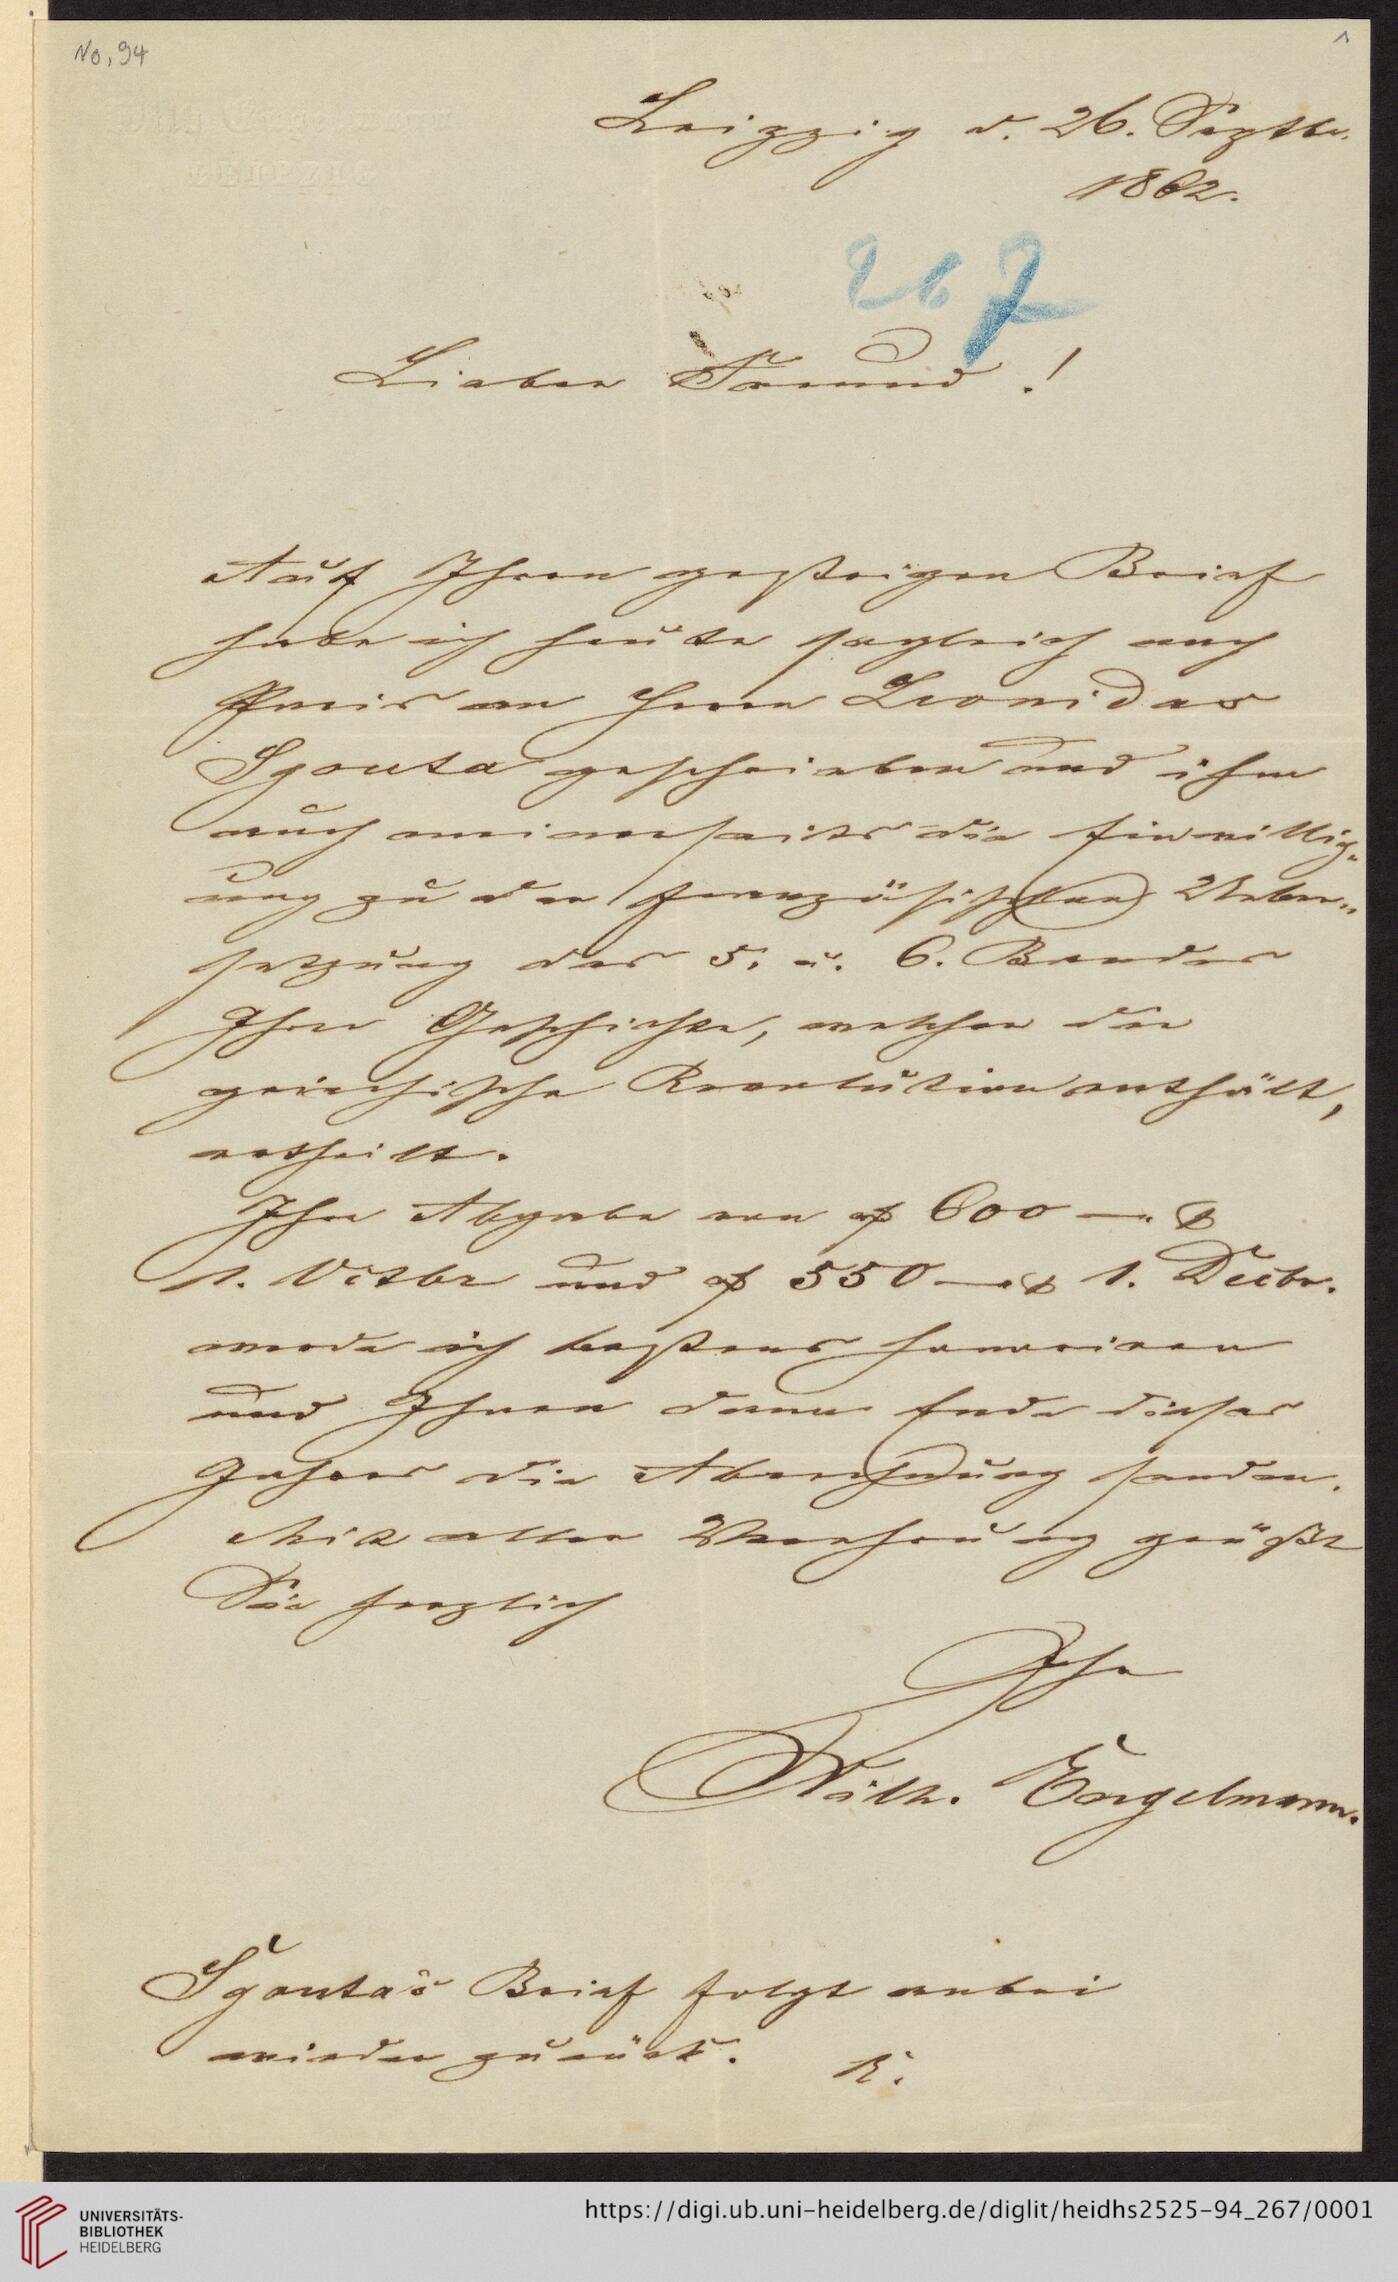 No, 94
1
Leipzig d. 26. Septbr.
1862.
267
Lieber Freund!
Auf Ihren gestrigen Brief
habe ich heute sogleich nach
Paris an Herrn Leonidas
Sgouta geschrieben und ihm
auch meinerseits die Einwillig-
ung zu der französischen Ueber-
setzung des 5. u. 6. Bandes
Ihrer Geschichte, welcher die
griechische Revolution enthält,
ertheilt.
Ihre Abgabe von 600 —
1. Octbr und 550 — 1. Decbr.
werde ich bestens honoriren
und Ihnen dann Ende dieses
Jahres die Abrechnung senden.
Mit aller Verehrung grüßt
Sie herzlich
Ihr
Wilh. Engelmann.
Sgouta's Brief folgt anbei
wieder zurück.
UNIVERSITÄTS-
BIBLIOTHEK
HEIDELBERG
https://digi.ub.uni-heidelberg.de/diglit/heidhs2525-94_267/0001